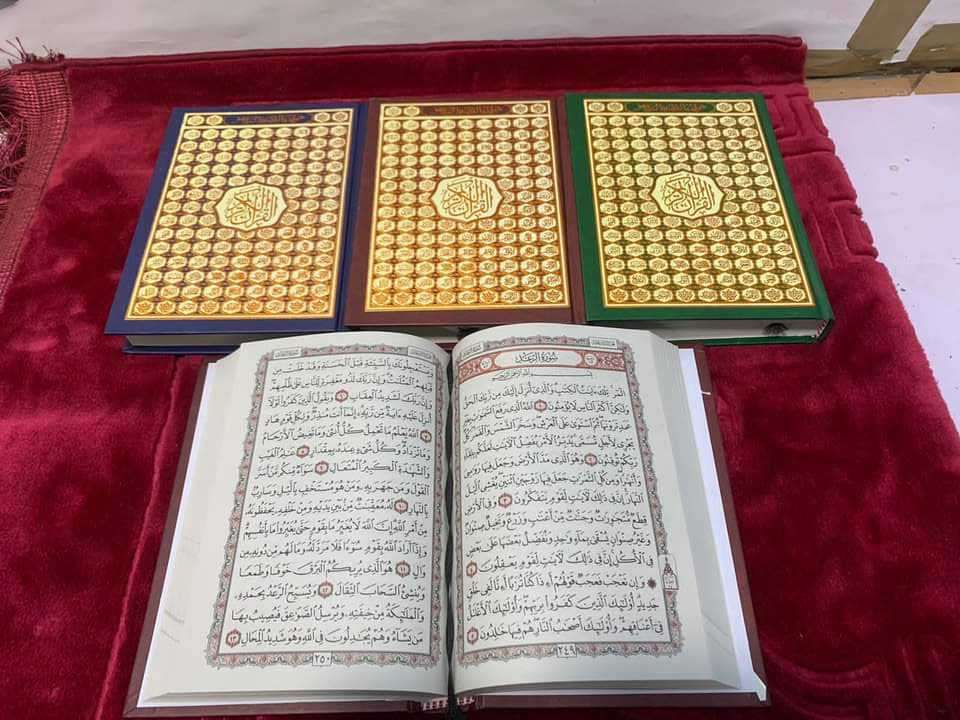 القرآن الكريم
القرآن الكريم
القرآن الكريم
سُورَةُ الرَّعْدِ
بِسْمِ اللَّهِ الرَّحْمَٰنِ الرَّحِيمِ
الٓمٓر تِلْكَ ءَايَٰتُ الْكِتَٰبِ وَالَّذِىٓ أُنزِلَ إِلَيْكَ مِن رَّبِّكَ الْحَقُّ
وَلَٰكِنَّ أَكْثَرَ النَّاسِ لَا يُؤْمِنُونَ ١ اللَّهُ الَّذِى رَفَعَ السَّمَٰوَٰتِ بِغَيْرِ
عَمَدٍ تَرَوْنَهَا ثُمَّ اسْتَوَىٰ عَلَى الْعَرْشِ وَسَخَّرَ الشَّمْسَ وَالْقَمَرَ كُلٌّ
يَجْرِى لِأَجَلٍ مُّسَمًّى يُدَبِّرُ الْأَمْرَ يُفَصِّلُ الْءَايَٰتِ لَعَلَّكُم بِلِقَآءِ
رَبِّكُمْ تُوقِنُونَ ٢ وَهُوَ الَّذِى مَدَّ الْأَرْضَ وَجَعَلَ فِيهَا رَوَٰسِىَ
وَأَنْهَٰرًا وَمِن كُلِّ الثَّمَرَٰتِ جَعَلَ فِيهَا زَوْجَيْنِ اثْنَيْنِ يُغْشِى الَّيْلَ
النَّهَارَ إِنَّ فِى ذَٰلِكَ لَءَايَٰتٍ لِّقَوْمٍ يَتَفَكَّرُونَ ٣ وَفِى الْأَرْضِ
قِطَعٌ مُّتَجَٰوِرَٰتٌ وَجَنَّٰتٌ مِّنْ أَعْنَٰبٍ وَزَرْعٌ وَنَخِيلٌ صِنْوَانٌ
وَغَيْرُ صِنْوَانٍ يُسْقَىٰ بِمَآءٍ وَٰحِدٍ وَنُفَضِّلُ بَعْضَهَا عَلَىٰ بَعْضٍ
فِى الْأُكُلِ إِنَّ فِى ذَٰلِكَ لَءَايَٰتٍ لِّقَوْمٍ يَعْقِلُونَ ٤
۞ وَإِن تَعْجَبْ فَعَجَبٌ قَوْلُهُمْ أَءِذَا كُنَّا تُرَٰبًا أَءِنَّا لَفِى خَلْقٍ
جَدِيدٍ أُولَٰٓئِكَ الَّذِينَ كَفَرُوا بِرَبِّهِمْ وَأُولَٰٓئِكَ الْأَغْلَٰلُ
فِىٓ أَعْنَاقِهِمْ وَأُولَٰٓئِكَ أَصْحَٰبُ النَّارِ هُمْ فِيهَا خَٰلِدُونَ ٥
٢٤٩
وَيَسْتَعْجِلُونَكَ بِالسَّيِّئَةِ قَبْلَ الْحَسَنَةِ وَقَدْ خَلَتْ مِن
قَبْلِهِمُ الْمَثُلَٰتُ وَإِنَّ رَبَّكَ لَذُو مَغْفِرَةٍ لِّلنَّاسِ عَلَىٰ ظُلْمِهِمْ
وَإِنَّ رَبَّكَ لَشَدِيدُ الْعِقَابِ ٦ وَيَقُولُ الَّذِينَ كَفَرُوا لَوْلَآ
أُنزِلَ عَلَيْهِ ءَايَةٌ مِّن رَّبِّهِ إِنَّمَآ أَنتَ مُنذِرٌ وَلِكُلِّ قَوْمٍ هَادٍ
٧ اللَّهُ يَعْلَمُ مَا تَحْمِلُ كُلُّ أُنثَىٰ وَمَا تَغِيضُ الْأَرْحَامُ
وَمَا تَزْدَادُ وَكُلُّ شَىْءٍ عِندَهُ بِمِقْدَارٍ ٨ عَٰلِمُ الْغَيْبِ
وَالشَّهَٰدَةِ الْكَبِيرُ الْمُتَعَالِ ٩ سَوَآءٌ مِّنكُم مَّنْ أَسَرَّ
الْقَوْلَ وَمَن جَهَرَ بِهِ وَمَنْ هُوَ مُسْتَخْفٍ بِالَّيْلِ وَسَارِبٌ
بِالنَّهَارِ ١٠ لَهُ مُعَقِّبَٰتٌ مِّنۢ بَيْنِ يَدَيْهِ وَمِنْ خَلْفِهِ يَحْفَظُونَهُ
مِنْ أَمْرِ اللَّهِ إِنَّ اللَّهَ لَا يُغَيِّرُ مَا بِقَوْمٍ حَتَّىٰ يُغَيِّرُوا مَا بِأَنفُسِهِمْ
وَإِذَآ أَرَادَ اللَّهُ بِقَوْمٍ سُوٓءًا فَلَا مَرَدَّ لَهُ وَمَا لَهُم مِّن دُونِهِ مِن
وَالٍ ١١ هُوَ الَّذِى يُرِيكُمُ الْبَرْقَ خَوْفًا وَطَمَعًا
وَيُنشِئُ السَّحَابَ الثِّقَالَ ١٢ وَيُسَبِّحُ الرَّعْدُ بِحَمْدِهِ
وَالْمَلَٰٓئِكَةُ مِنْ خِيفَتِهِ وَيُرْسِلُ الصَّوَٰعِقَ فَيُصِيبُ بِهَا
مَن يَشَآءُ وَهُمْ يُجَٰدِلُونَ فِى اللَّهِ وَهُوَ شَدِيدُ الْمِحَالِ ١٣
٢٥٠